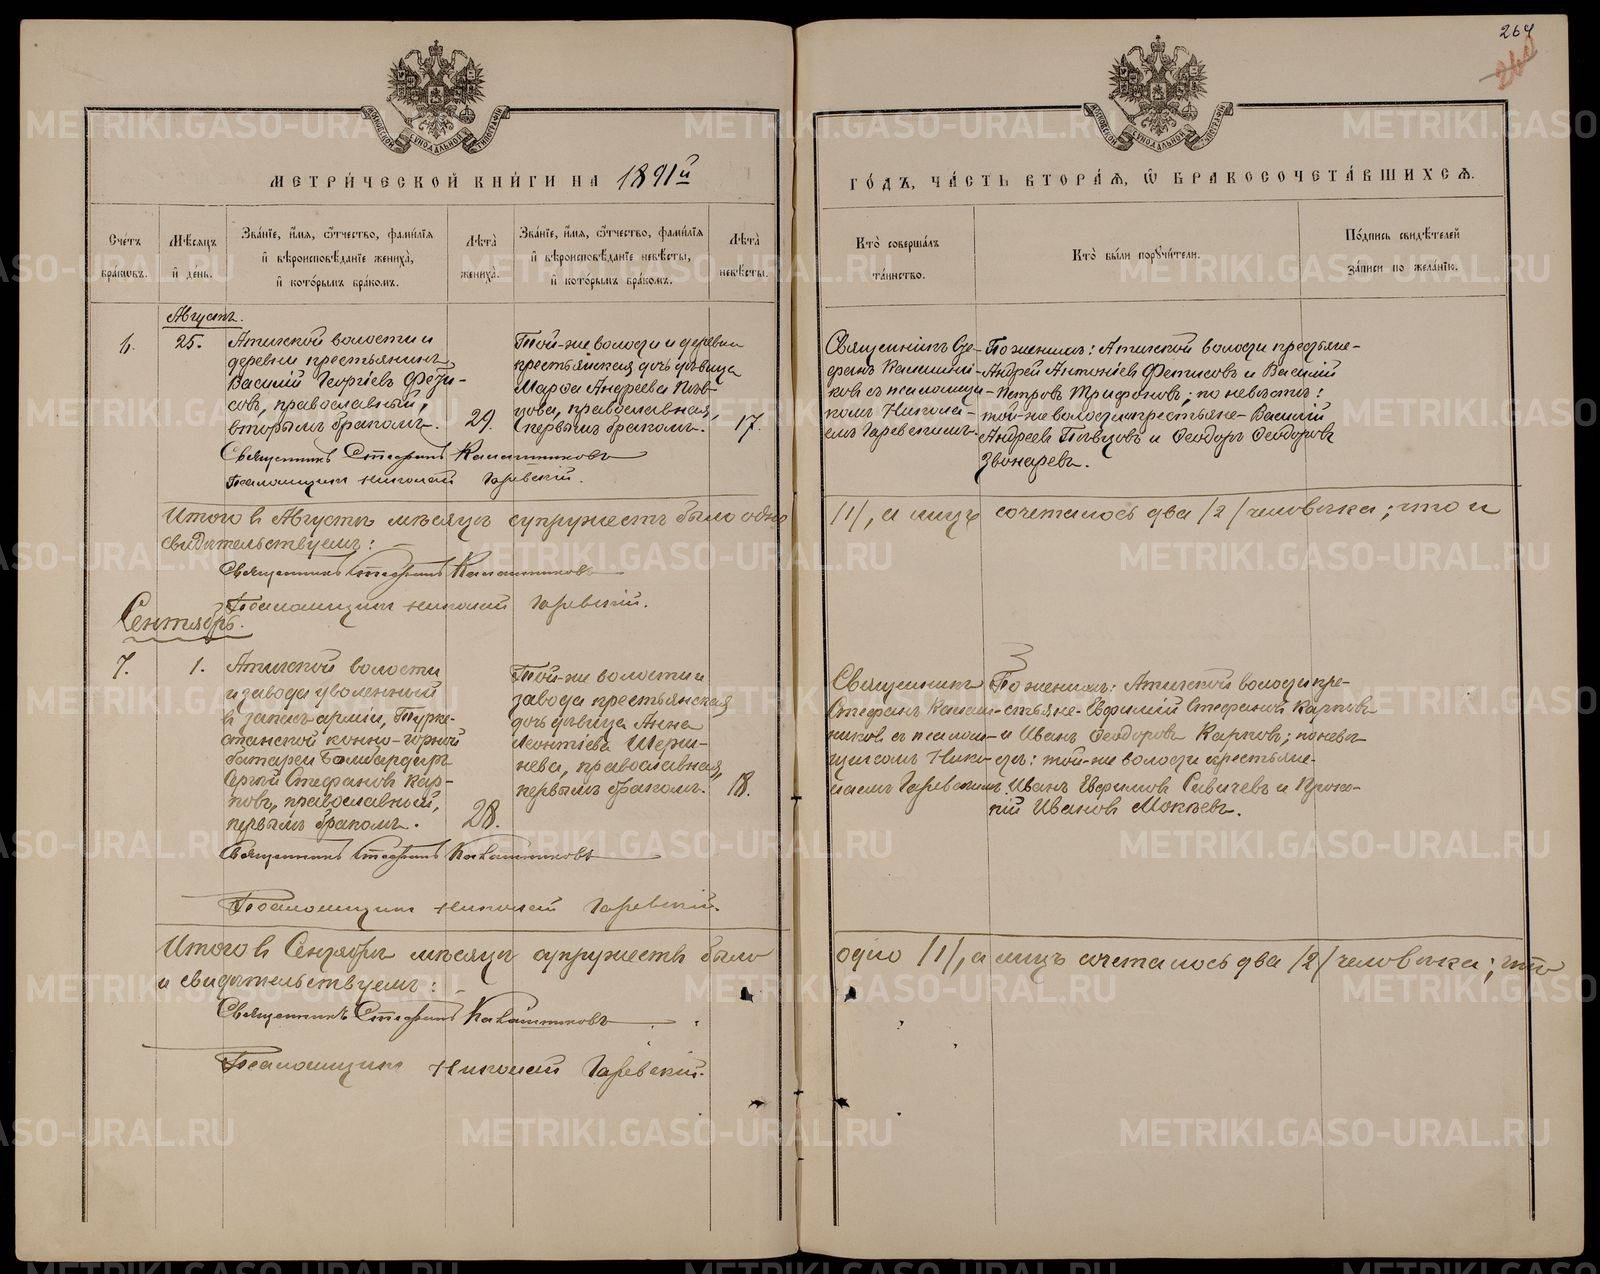 264
МЕТРИ́ЧЕСКОЙ КНИ́ГИ НА 1891й
ГО́ДЪ, ЧА́СТЬ ВТОРА́Я, Ѡ БРАКОСОЧЕТА́ВШИХСЯ.
Сче́тъ бра́ковъ.
Мѣ́сяцъ и де́нь.
Зва́нїе, и́мя, о́тчество, фами́лїя
и вѣроисповѣ́данїе жениха̀,
и кото́рымъ бра́комъ.
Лѣта̀ жениха̀.
Зва́нїе, и́мя, о́тчество, фами́лїя
и вѣроисповѣ́данїе невѣ́сты,
и кото́рымъ бра́комъ.
Лѣта̀ невѣ́сты.
Кто̀ соверша́лъ
та́инство.
Кто̀ бы́ли поручи́тели.
По́дпись свидѣ́телей
за́писи по жела́нїю.
Августъ.
6. 25.
Атигской волости и
деревни крестьянинъ
Василій Георгіевъ Фети-
совъ, православный,
вторымъ бракомъ. 29.
Той-же волости и деревни
крестьянская дочь дѣвица
Марѳа Андреева Пѣв-
цова, православная,
первымъ бракомъ. 17.
Священникъ Сте-
фанъ Калашни-
ковъ съ псаломщи-
комъ Никола-
емъ Гаревскимъ.
По женихѣ: Атигской волости крестьяне-
Андрей Антоніевъ Фетисовъ и Василій
Петровъ Трифоновъ; по невѣстѣ:
той-же волости крестьяне- Василій
Андреевъ Пѣвцовъ и Ѳеодоръ Ѳеодоровъ
Звонаревъ.
Священникъ Стефанъ Калашниковъ
Псаломщикъ Николай Гаревскій.
Итого въ Августѣ мѣсяцѣ супружествъ было одно /1/, а лицъ сочеталось два /2/ человѣка; что и
свидѣтельствуемъ:
Священникъ Стефанъ Калашниковъ
Псаломщикъ Николай Гаревскій.
Сентябрь.
7. 1.
Атигской волости
и завода уволенный
въ запасъ арміи, Турке-
станской конно-горной
батареи Бомбардиръ
Сергій Стефановъ Кар-
повъ, православный,
первымъ бракомъ. 28.
Той-же волости и
завода крестьянская
дочь дѣвица Анна
Леонтіева Шерш-
нева, православная,
первымъ бракомъ. 18.
Священникъ
Стефанъ Калаш-
никовъ съ псалом-
щикомъ Нико-
лаемъ Гаревскимъ.
По женихѣ: Атигской волости кре-
стьяне- Евфимій Стефановъ Карповъ
и Иванъ Ѳеодоровъ Карповъ; по невѣ-
стѣ: той-же волости крестьяне-
Иванъ Евфимовъ Савичевъ и Проко-
пій Ивановъ Мокѣевъ.
Священникъ Стефанъ Калашниковъ
Псаломщикъ Николай Гаревскій.
Итого въ Сентябрѣ мѣсяцѣ супружествъ было одно /1/, а лицъ сочеталось два /2/ человѣка; что
и свидѣтельствуемъ:
Священникъ Стефанъ Калашниковъ
Псаломщикъ Николай Гаревскій.
METRIKI.GASO-URAL.RU